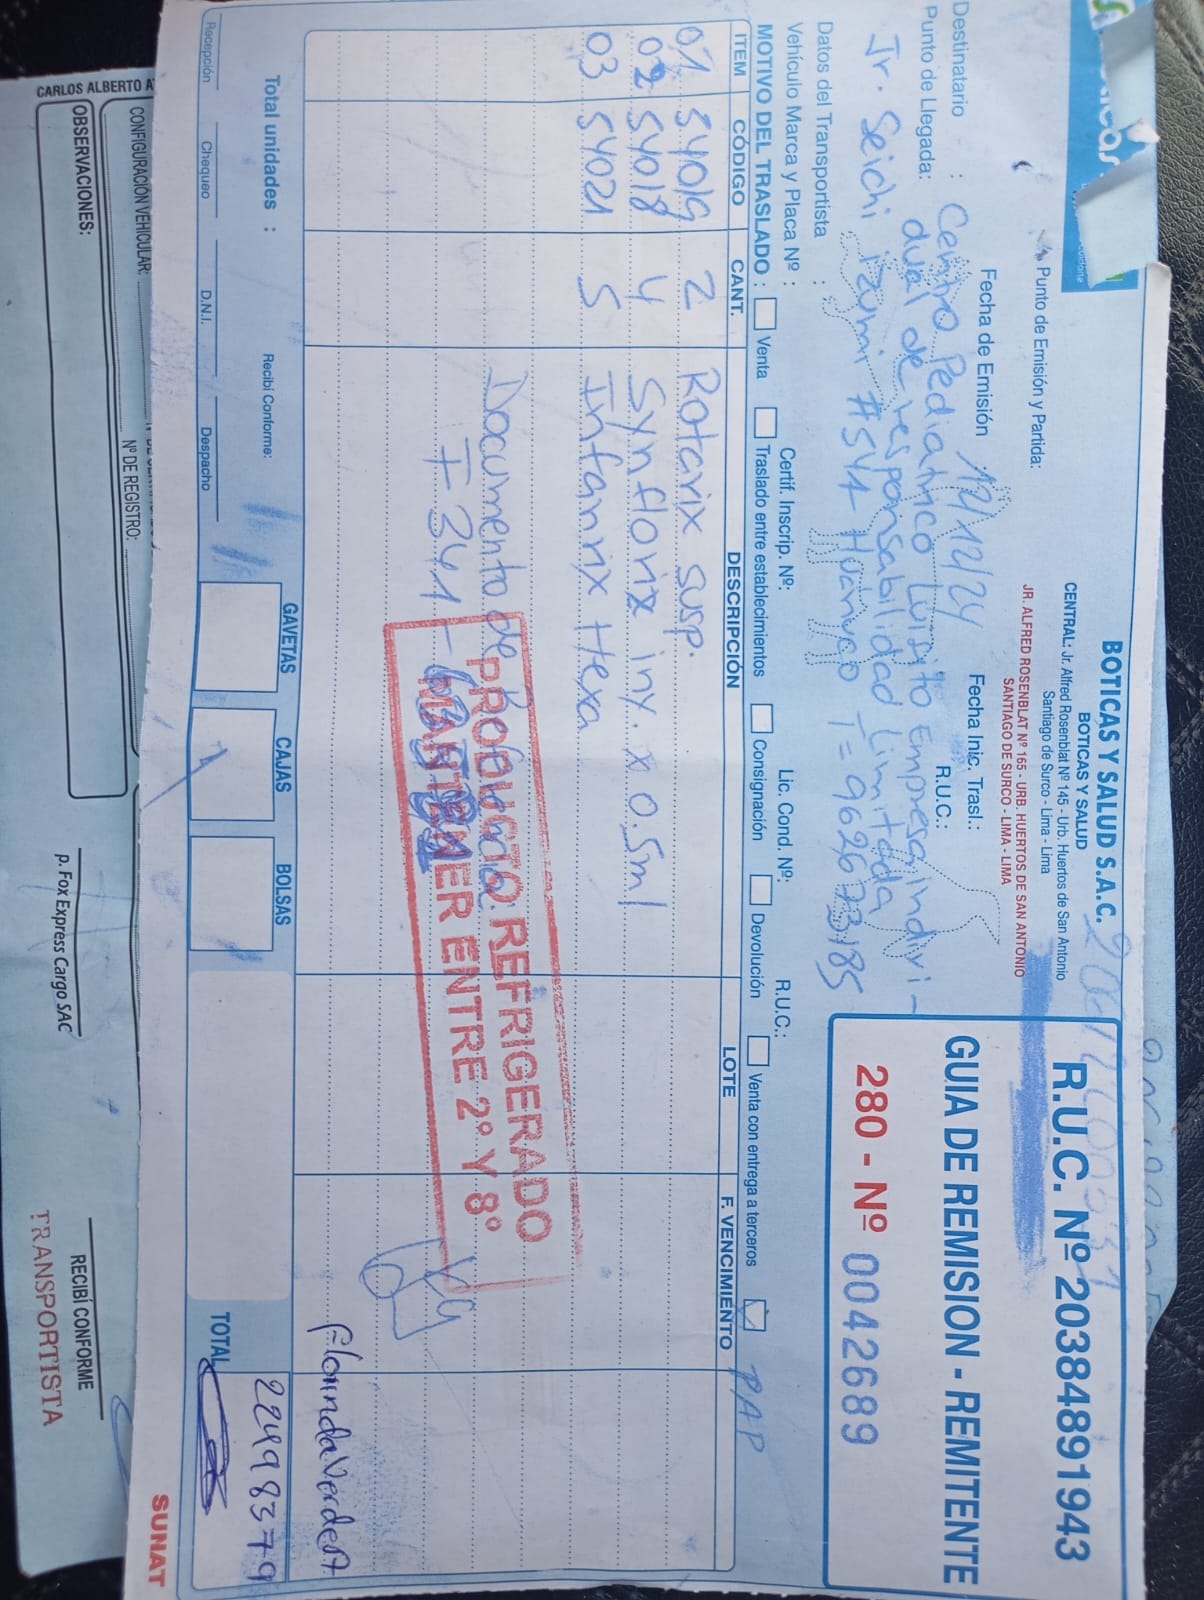 BOTICAS Y SALUD S.A.C.
BOTICAS Y SALUD
CENTRAL: Jr. Alfred Rosenblat Nº 145 - Urb. Huertos de San Antonio
Santiago de Surco - Lima - Lima
JR. ALFRED ROSENBLAT Nº 165 - URB. HUERTOS DE SAN ANTONIO
SANTIAGO DE SURCO - LIMA - LIMA
R.U.C. Nº 20384891943
GUIA DE REMISION - REMITENTE
280 - Nº 0042689
Punto de Emisión y Partida:
Fecha de Emisión 12/12/24 Fecha Inic. Trasl.:
Destinatario : Centro Pediatrico Luisito Empresa Indivi- R.U.C.:
Punto de Llegada: dual de responsabilidad Limitada
Jr. Seichi izumi #544 Huánuco T=962673185
Datos del Transportista :
Vehículo Marca y Placa Nº : Certif. Inscrip. Nº: Lic. Cond. Nº: R.U.C.:
MOTIVO DEL TRASLADO : Venta Traslado entre establecimientos Consignación Devolución Venta con entrega a terceros PAP
ITEM CÓDIGO CANT. DESCRIPCIÓN LOTE F. VENCIMIENTO
01 54019 2 Rotarix susp.
02 54018 4 Synflorix iny. x 0.5ml
03 54021 5 Infanrix Hexa
Documento de
F341-
PRODUCTO REFRIGERADO
MANTENER ENTRE 2º Y 8º
Total unidades : Recibí Conforme: GAVETAS CAJAS BOLSAS TOTAL
1
22498379
Recepción Chequeo D.N.I. Despacho
SUNAT
CONFIGURACIÓN VEHICULAR:
Nº DE REGISTRO:
CARLOS ALBERTO
OBSERVACIONES:
p. Fox Express Cargo SAC
RECIBÍ CONFORME
TRANSPORTISTA